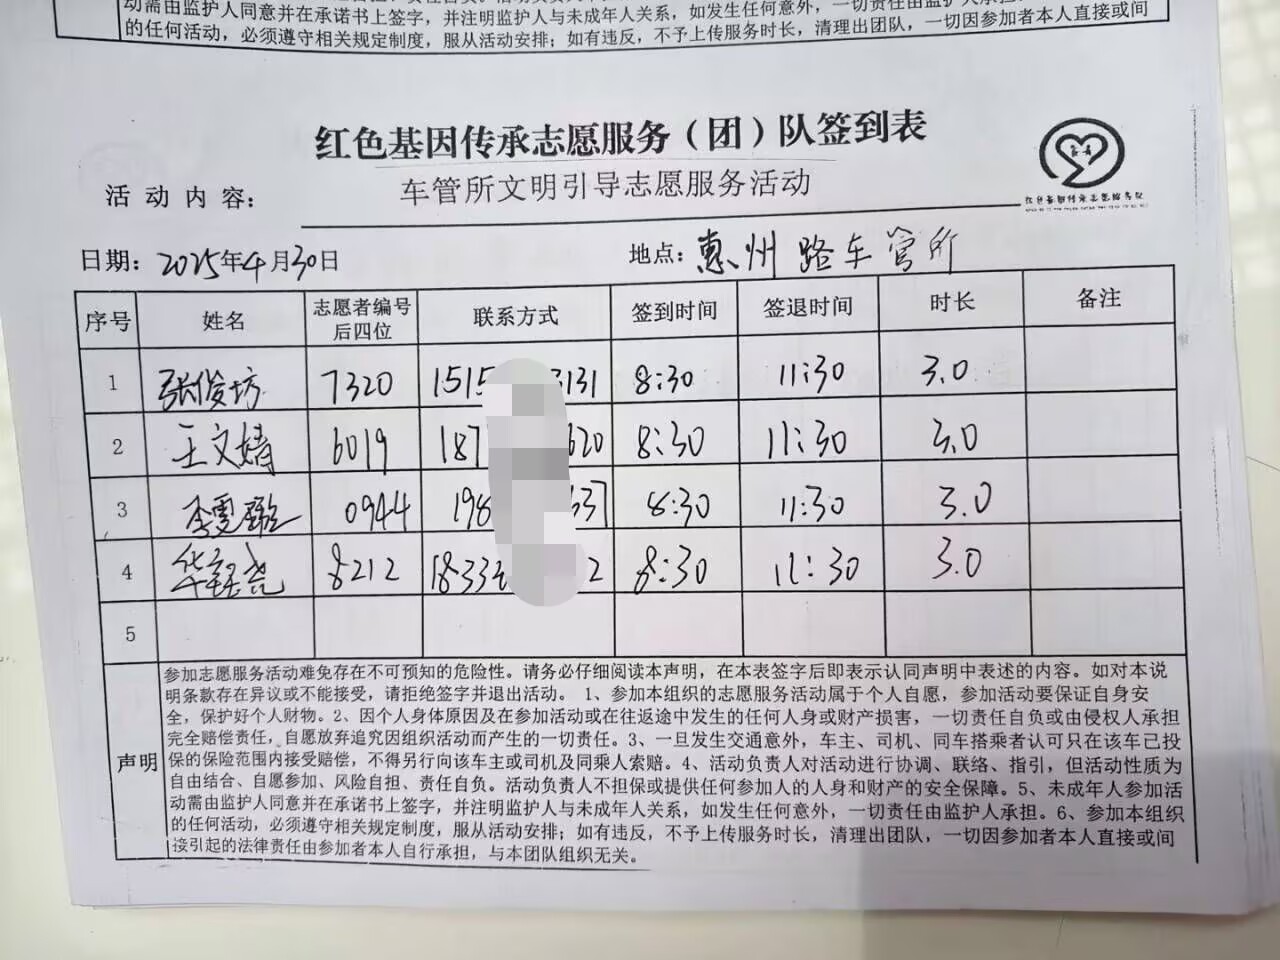 动需由监护人同意并在承诺书上签字，并注明监护人与未成年人关系，如发生任何意外，一切责任由监护人承担
的任何活动，必须遵守相关规定制度，服从活动安排；如有违反，不予上传服务时长，清理出团队，一切因参加者本人直接或间
红色基因传承志愿服务（团）队签到表
活动内容： 车管所文明引导志愿服务活动
红色基因传承志愿服务队
日期：2025年4月30日 地点：惠州路车管所
序号 姓名 志愿者编号后四位 联系方式 签到时间 签退时间 时长 备注
1 张俊坊 7320 1515 3131 8:30 11:30 3.0
2 王文婧 6019 187 620 8:30 11:30 3.0
3 李雯 0944 198 637 8:30 11:30 3.0
4 华 尧 8212 1833 2 8:30 11:30 3.0
5
声明
参加志愿服务活动难免存在不可预知的危险性。请务必仔细阅读本声明，在本表签字后即表示认同声明中表述的内容。如对本说
明条款存在异议或不能接受，请拒绝签字并退出活动。 1、参加本组织的志愿服务活动属于个人自愿，参加活动要保证自身安
全，保护好个人财物。2、因个人身体原因及在参加活动或在往返途中发生的任何人身或财产损害，一切责任自负或由侵权人承担
完全赔偿责任，自愿放弃追究因组织活动而产生的一切责任。3、一旦发生交通意外，车主、司机、同车搭乘者认可只在该车已投
保的保险范围内接受赔偿，不得另行向该车主或司机及同乘人索赔。4、活动负责人对活动进行协调、联络、指引，但活动性质为
自由结合、自愿参加、风险自担、责任自负。活动负责人不担保或提供任何参加人的人身和财产的安全保障。5、未成年人参加活
动需由监护人同意并在承诺书上签字，并注明监护人与未成年人关系，如发生任何意外，一切责任由监护人承担。6、参加本组织
的任何活动，必须遵守相关规定制度，服从活动安排；如有违反，不予上传服务时长，清理出团队，一切因参加者本人直接或间
接引起的法律责任由参加者本人自行承担，与本团队组织无关。